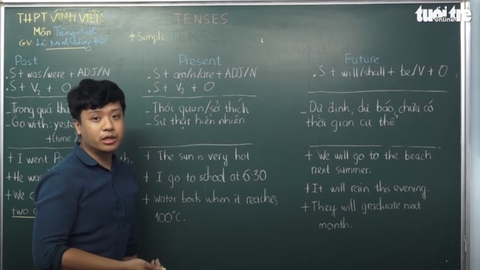 THPT VĨNH VIỄN
Môn Tiếng Anh
GV:
TENSES
+ Simple
tuổi trẻ
ONLINE
Past
. S + was/were + ADJ/N
. S + V₂ + O
- Trong quá
- Go with:
+ I went
+ He
+ We
two
Present
. S + am/is/are + ADJ/N
. S + V₁ + O
- Thói quen/sở thích
- Sự thật hiển nhiên
+ The sun is very hot
+ I go to school at 6:30
+ Water boils when it reaches
100°C.
Future
. S + will/shall + be/V + O
- Dự định, dự báo chưa có
thời gian cụ thể
+ We will go to the beach
next summer.
+ It will rain this evening.
+ They will graduate next
month.